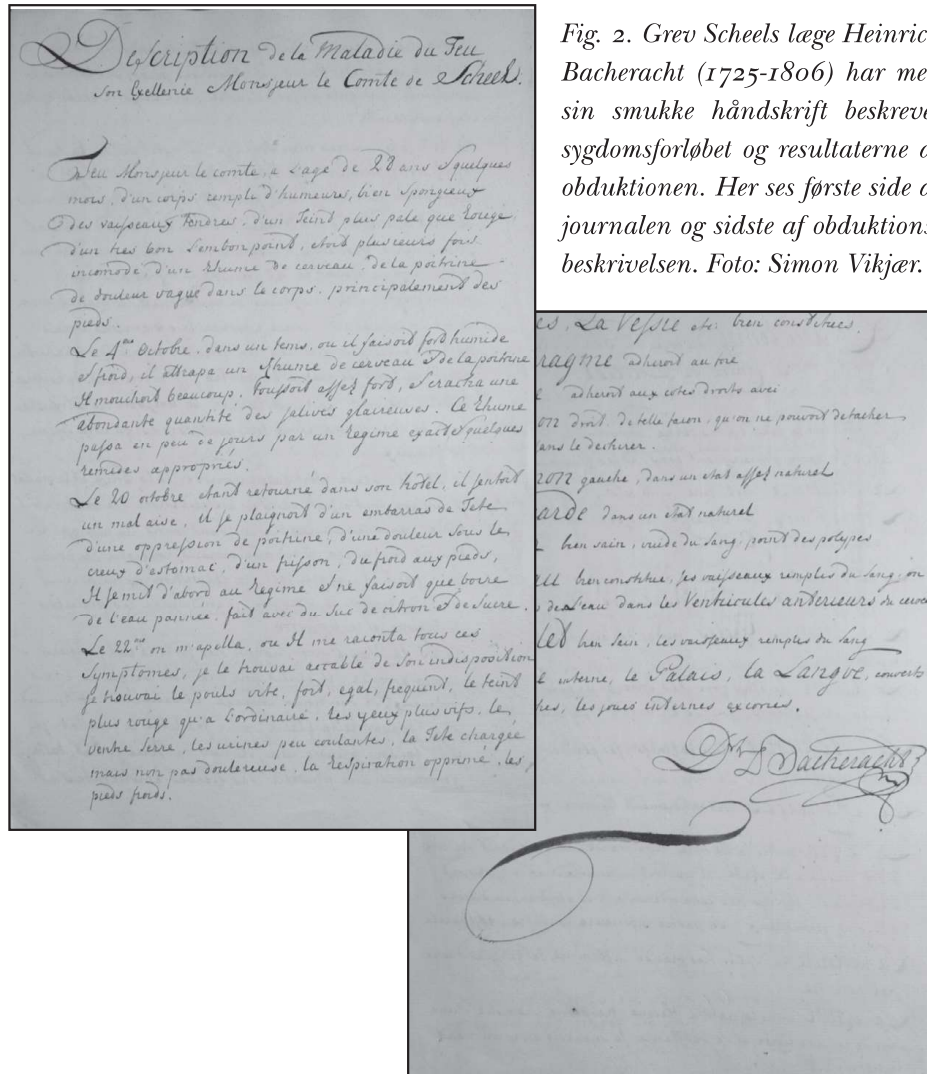 Description de la Maladie du Feu
son Exellence Monsieur le Comte de Scheel.
Feu Monsieur le comte, a l'age de 28 ans & quelques
mois, d'un corps remple d'humeurs, bien spongieux
des vaisseaux tendres, d'un Teint plus pale que rouge,
d'un tres bon L'embonpoint, etoit plusieurs fois
incomodé d'un Rhume de cerveau, de la poitrine
de douleur vague dans le corps, principalement des
pieds.
Le 4me Octobre, dans un tems, ou il faisoit fort humide
& froid, il attrapa un Rhume de cerveau & de la poitrine
Il mouchoit beaucoup, toussoit assez fort, & cracha une
abondante quantité des salives glaireuses. Ce Rhume
passa en peu de jours par un Regime exact & quelques
remides appropriés.
Le 20 octobre etant retourné dans son hotel, il sentoit
un mal aise, il se plaignoit d'un embarras de Tete
d'une oppression de poitrine, d'une douleur sous le
creux d'estomac, d'un frisson, du froid aux pieds,
Il se mit d'abord au Regime & ne faisoit que boire
de l'eau pannée, fait avec du Suc de citron & de Sucre.
Le 22me on m'apella, ou Il me raconta tous ces
Symptomes, je le trouvai accablé de son indisposition
je trouvai le pouls vite, fort, egal, frequent, le teint
plus rouge qu'a l'ordinaire, les yeux plus vifs, le
ventre serré, les urines peu coulantes, la Tete chargée
mais non pas doulereuse, la Respiration opprimé, les
pieds froids.
Fig. 2. Grev Scheels læge Heinric
Bacheracht (1725-1806) har me
sin smukke håndskrift beskreve
sygdomsforløbet og resultaterne a
obduktionen. Her ses første side a
journalen og sidste af obduktions
beskrivelsen. Foto: Simon Vikjær.
es, La Vessie etc: bien constituees.
ragme adheroit au
adheroit aux cotes droits avec
droit, de telle facon, qu'on ne pouvoit detacher
ans le dechirer.
gauche, dans un etat assez naturel
arde dans un etat naturel
bien sain, vuide du Sang, point des polypes
bien constitué, ses vaisseaux remples du sang, on
de l'eau dans les Ventricules anterieurs du cerve
let bien sain, les vaisseaux remples du Sang
interne, le Palais, la Langve, converts
hes, les joues internes excories.
Dr. Bacheracht